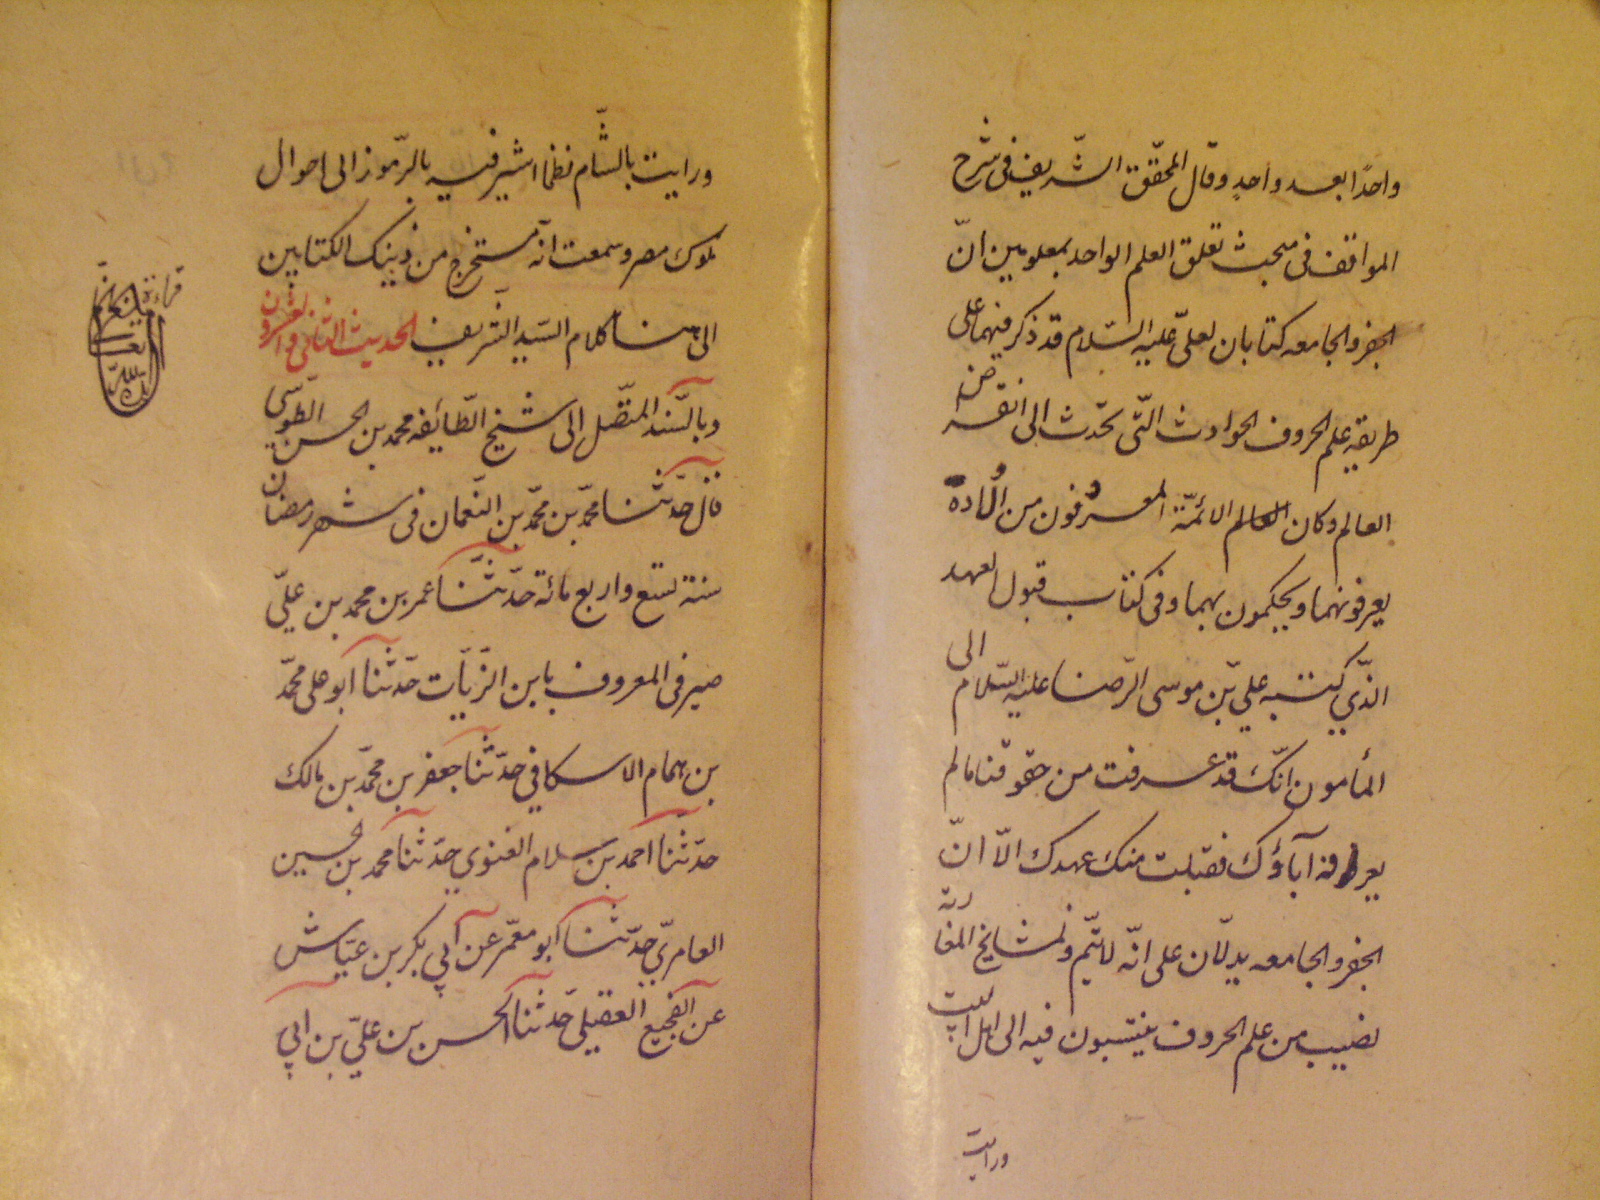 واحدًا بعد واحدٍ وقال المحقّق الشّريف فى شرح
المواقف فى مبحث تعلق العلم الواحد بمعلومين انّ
الجفر والجامعه كتابان لعلىّ عليه السّلام قد ذكر فيهما على
طريقه علم الحروف الحوادث الّتى تحّدث الى انقراض
العالم وكان العالم الائمّة المعروفون من اولاده
يعرفونهما ويحكمون بهما وفى كتاب قبول العهد
الذّي كتبه علي بّن موسى الرّضا عليه السّلام الى
المأمون انكّ قد عرفت من حقوقنا مالم
يعرفه آباؤك فقبلت منك عهدك الّا انّ
الجفر والجامعه يدلّان على انّه لا يتّم ولمشايخ المغاربة
نصيب من علم الحروف ينتسبون فيه الى اهل البيت
ورايت
ورايت بالشّام نظما اشير فيه بالرّموز الى احوال
ملوك مصر وسمعت انّه مستخرج من ذينك الكتابين
الى هنا كلام السّيد الشّريف الحديث الثانى والعشرون
وبالسّند المتّصل الى شيخ الطّائفه محمد بن الحسن الطّوسّي
قال حدّثنا محمّد بن محمّد بن النّعمان فى شهر رمضان
سنة تسع واربع مائة حدّثنا عمر بن محمد بن علىّ
صيرفى المعروف بابن الزّيّات حدّثنا ابو على محمّد
بن همام الاسكافي حدّثنا جعفر بن محمّد بن مالك
حدّثنا احمد بن سلام الغنوي حدّثنا محمد بن الحسين
العامريّ حدّثنا ابو معمّر عن ابي بكر بن عيّاش
عن الفجيع العقيلي حّدثنا الحسن بن عليّ بن ابي
قراءة